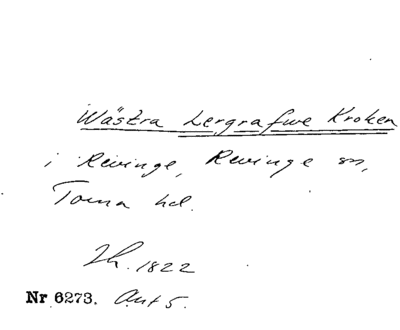 Wästra Lergrafwe Kroken
i Revinge, Revinge sn,
Torna hd.
Lh. 1822
Nr 6273. Akt 5.